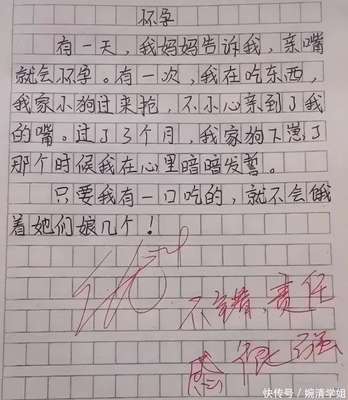 怀孕
有一天，我妈妈告诉我，亲嘴
就会怀孕。有一次，我在吃东西，
我家小狗过来抢，不小心亲到了我
的嘴。过了3个月，我家狗下崽了
那个时候我在心里暗暗发誓。
只要我有一口吃的，就不会饿
着她们娘几个！
优
不错，责任
感很强
快传号/婉清学姐